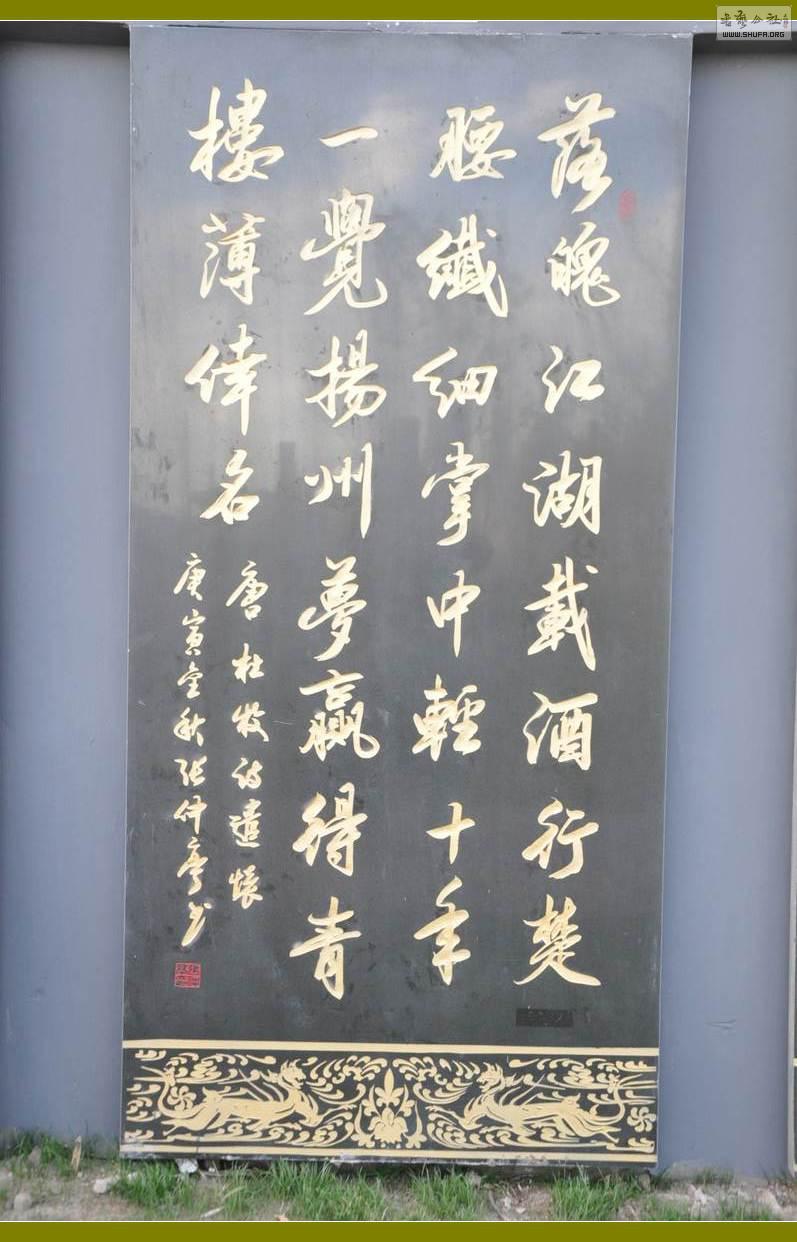 落魄江湖載酒行楚
腰纖細掌中輕十年
一覺揚州夢贏得青
樓薄倖名
唐杜牧詩遣懷
庚寅金秋張仲亭书
WWW.SHUFA.ORG